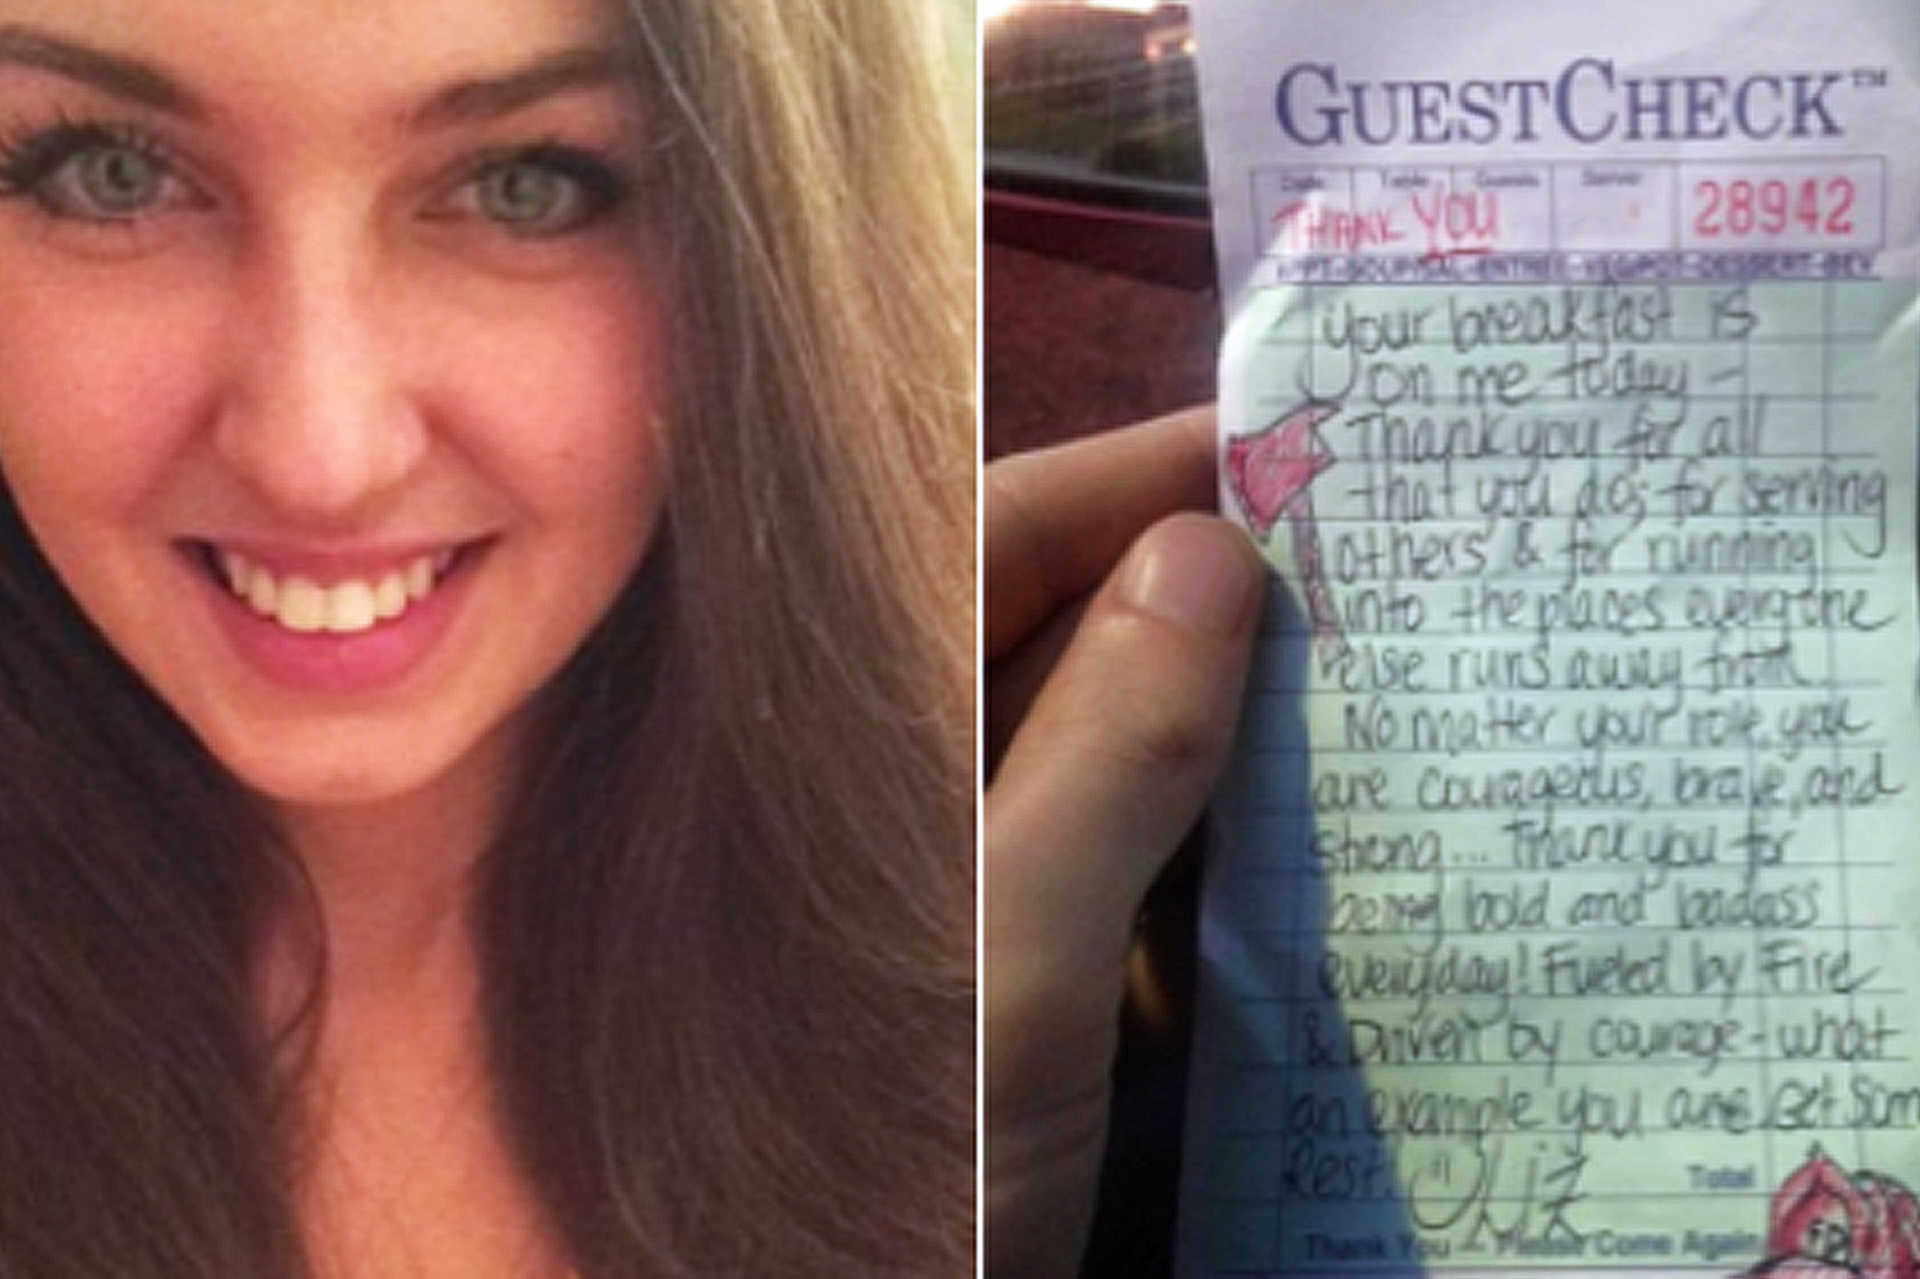 GUESTCHECK™
Date Table Guests Server
THANK YOU 28942
APPT-SOUP/SAL-ENTREE-VEG/POT-DESSERT-BEV
your breakfast is
on me today -
Thank you for all
that you do; for serving
others & for running
into the places everyone
else runs away from
No matter your role, you
are courageous, brave, and
strong... Thank you for
being bold and badass
everyday! Fueled by Fire
& Driven by courage - what
an example you are. Get Som
Rest!
Liz
Total
Thank You - Please Come Again
FD